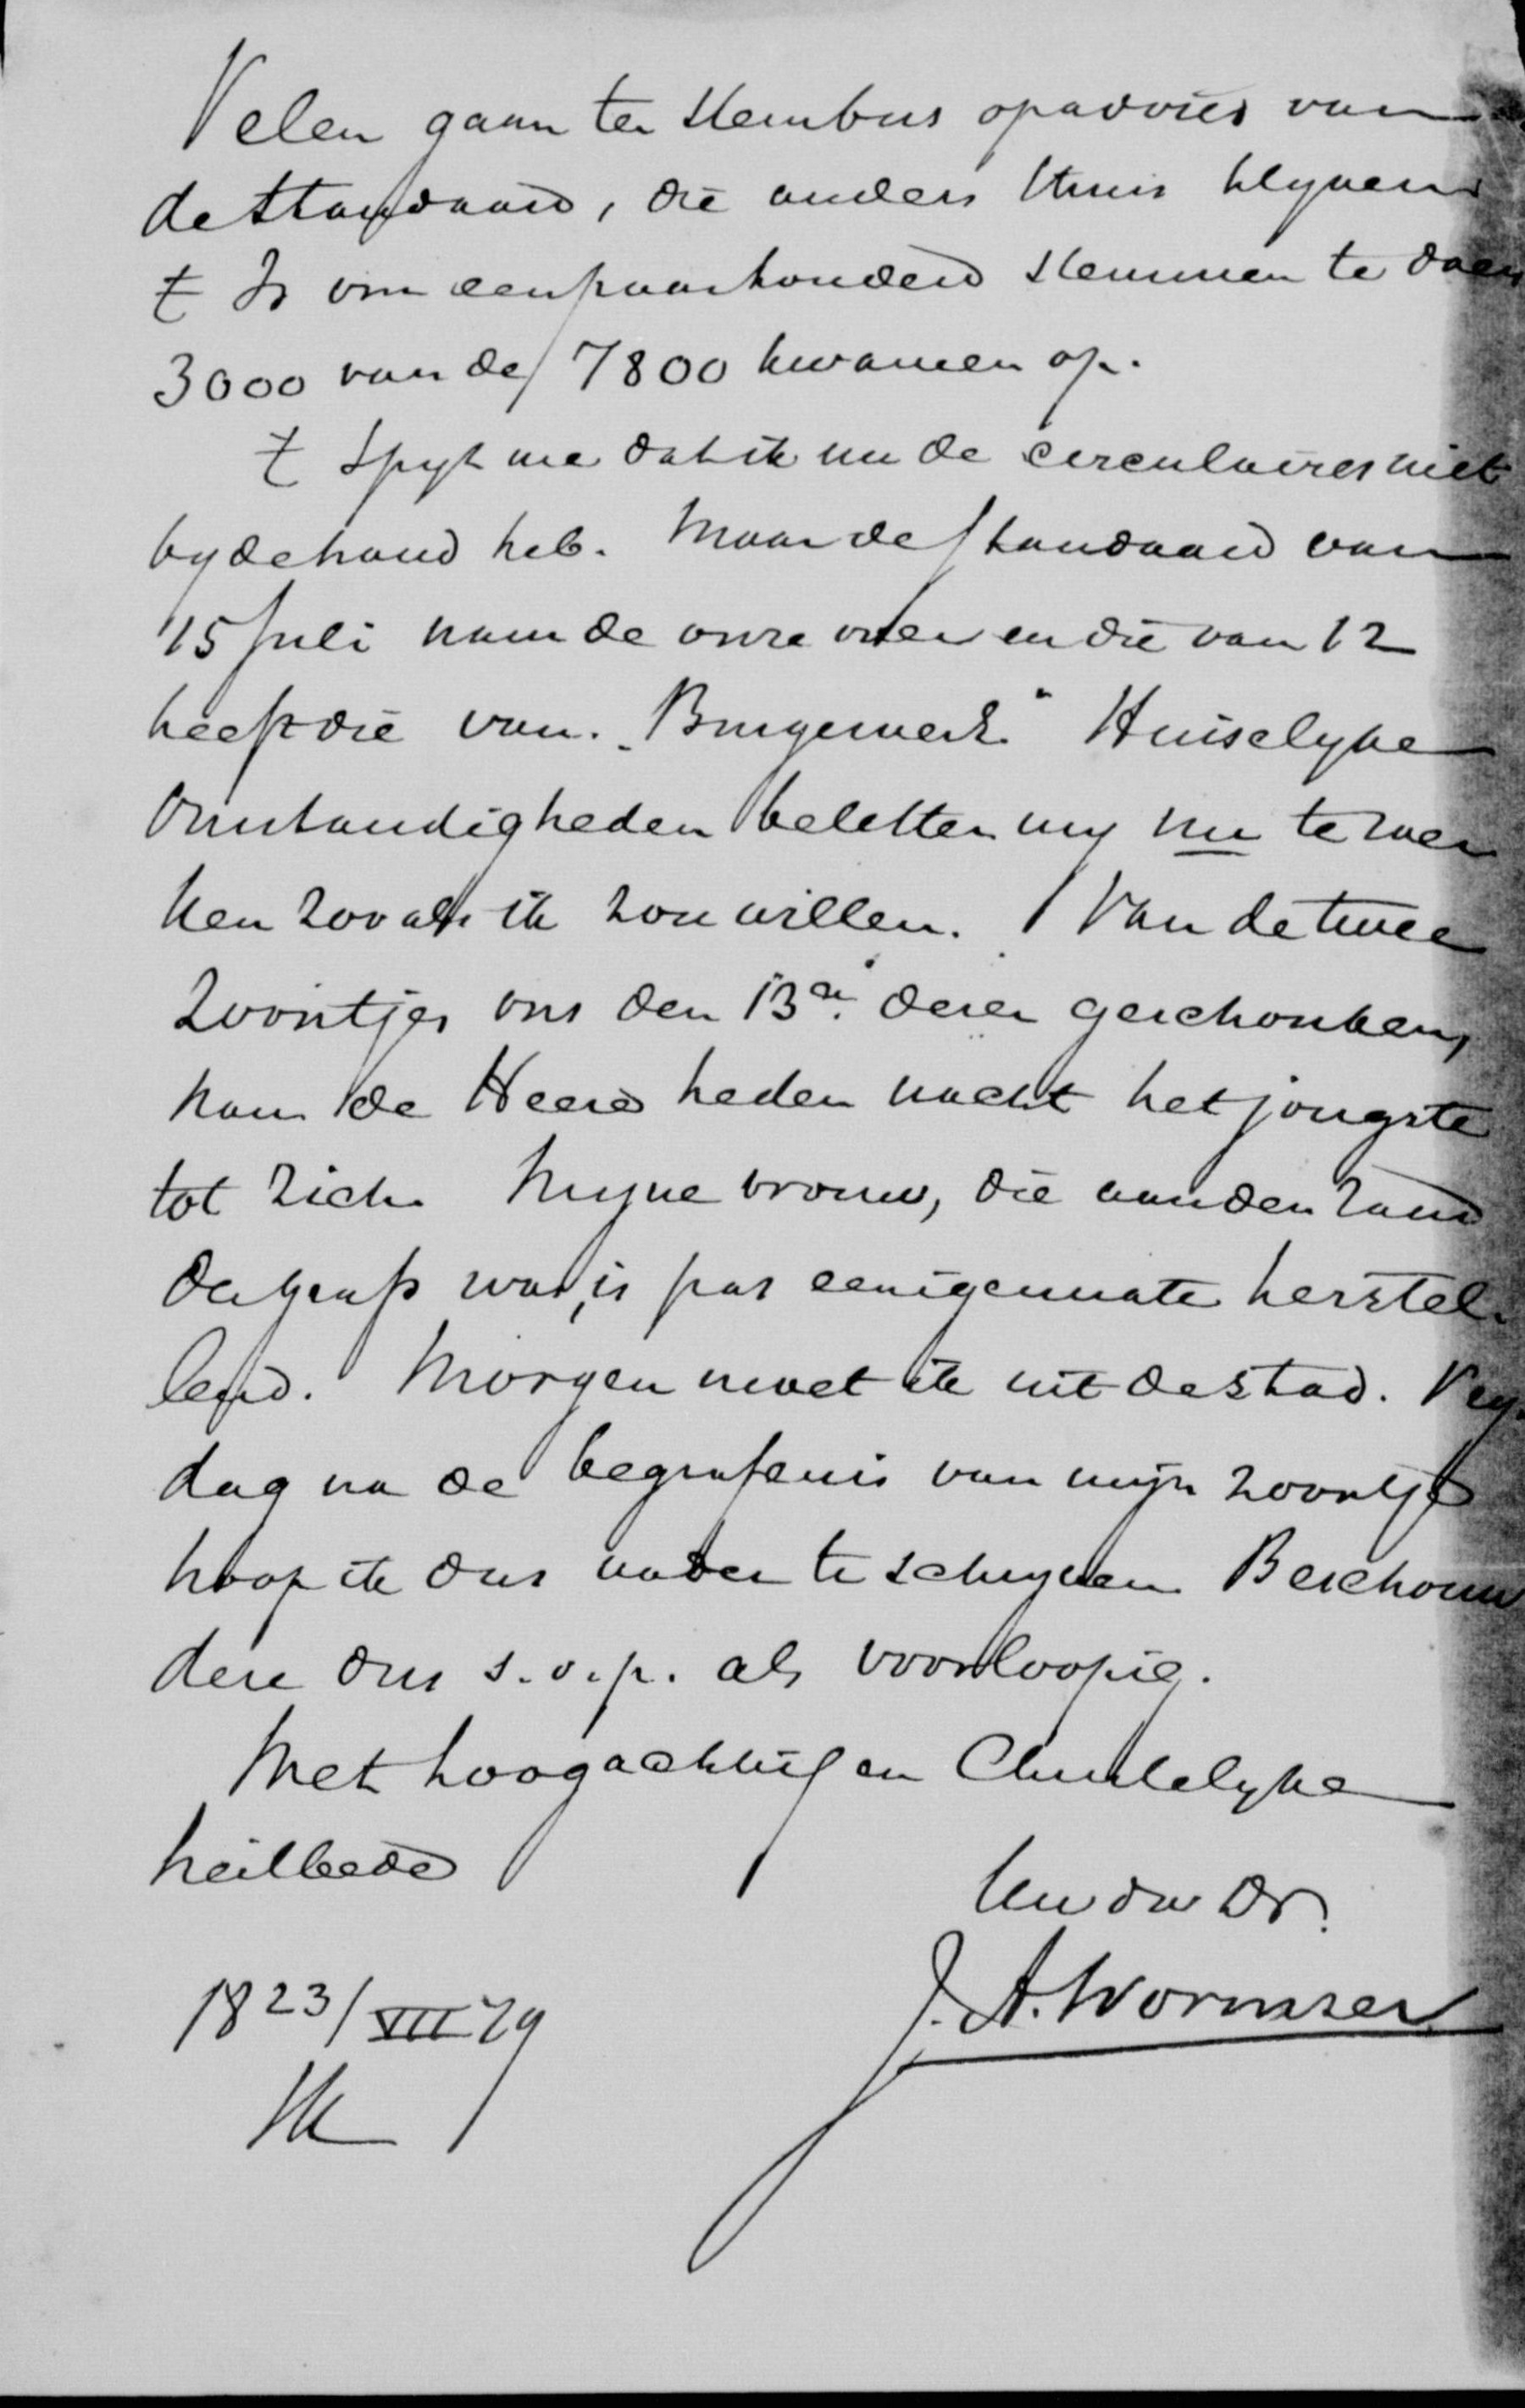 Velen gaan ter stembus op advies van
de Standaard, die anders thuis blyven
't Is om een paar honderd stemmen te doen
3000 van de 7800 kwamen op.
't Spyt me dat ik nu de circulaires niet
by de hand heb. Maar de Standaard van
15 Juli nam de onze over en die van 12
heeft die van „Burgerwerk" Huiselyke
Omstandigheden beletten my nu te wer
ken zooals ik zou willen. Van de twee
Zoontjes ons den 13de dezer geschonken,
nam de Heere heden nacht het jongste
tot zich. Myne vrouw, die aan den rand
des grafs was, is pas eenigermate herstel-
lend. Morgen moet ik uit de stad. Vry-
dag na de begrafenis van mijn zoontje
hoop ik dus nader te schryven. Beschouw
deze dus s.v.p. als voorloopig.
Met hoogachting en Christelyke
heilbede
Uw dw Dr.
J. A. Wormser
18 23/VII 79